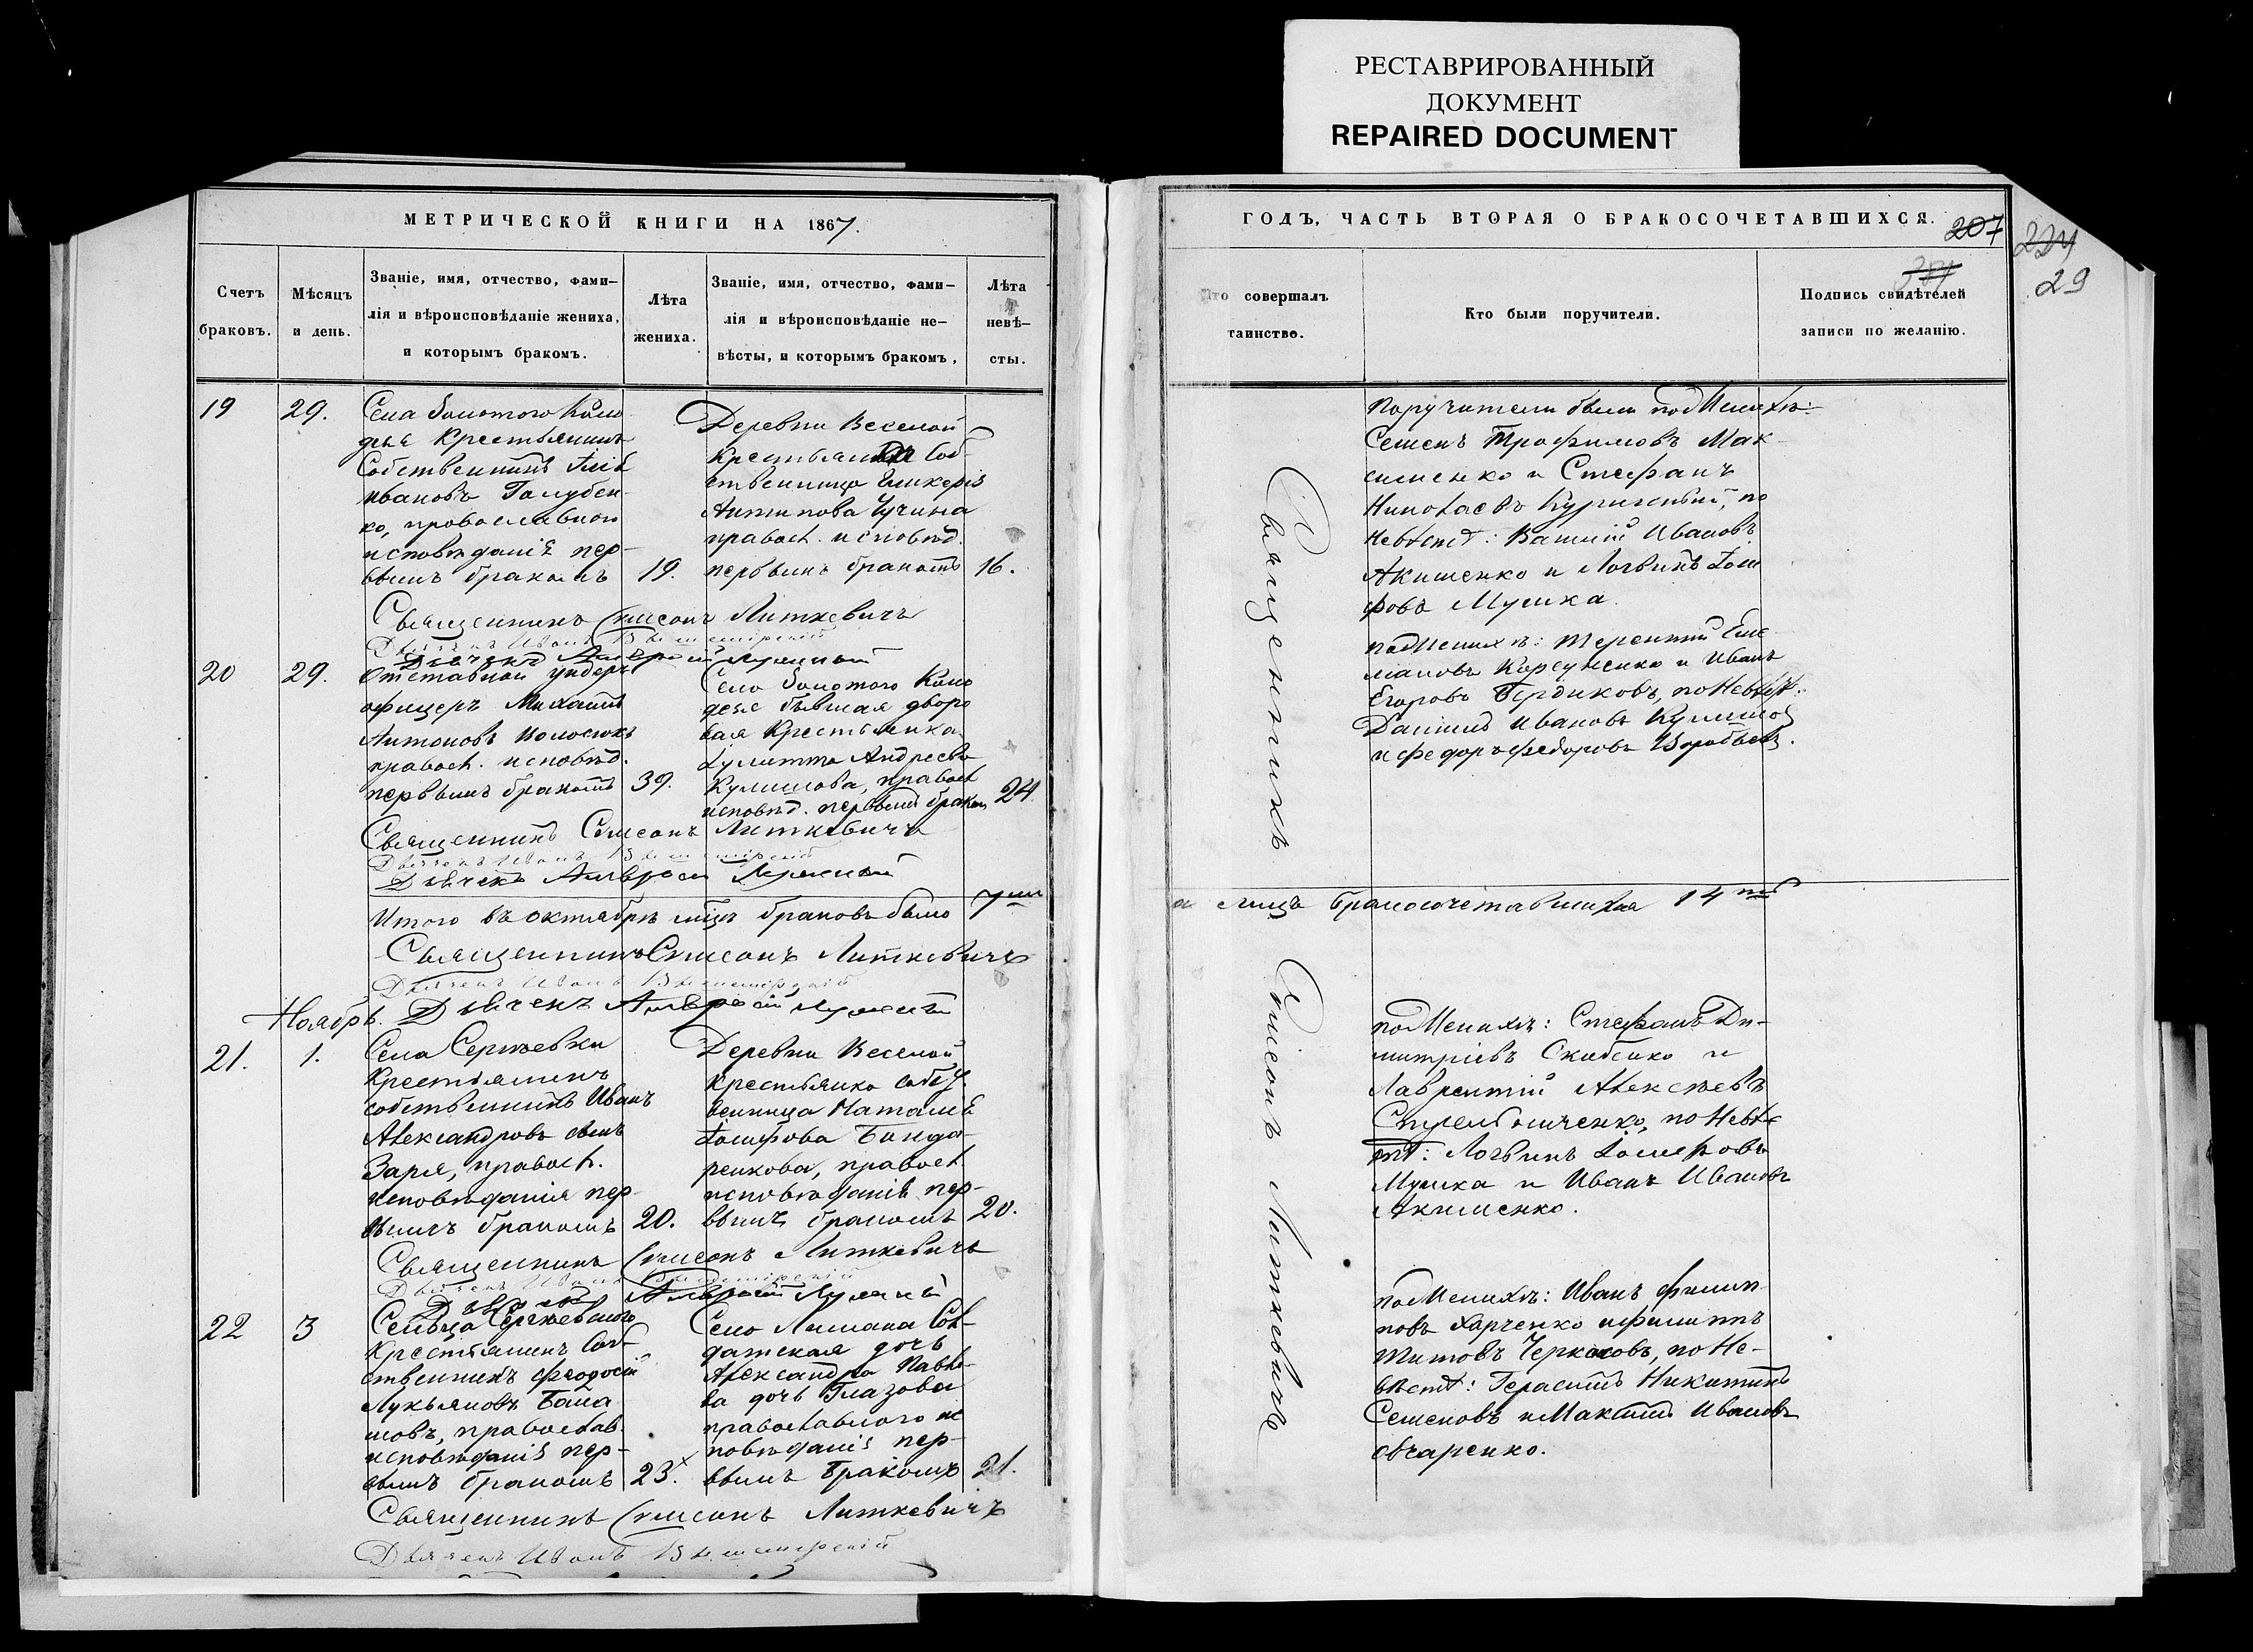 РЕСТАВРИРОВАННЫЙ
ДОКУМЕНТ
REPAIRED DOCUMENT
МЕТРИЧЕСКОЙ КНИГИ НА 1867.
Счетъ
браковъ.
Мѣсяцъ
и день.
Званіе, имя, отчество, фами-
лія и вѣроисповѣданіе жениха,
и которымъ бракомъ.
Лѣта
жениха.
Званіе, имя, отчество, фами-
лія и вѣроисповѣданіе не-
вѣсты, и которымъ бракомъ,
Лѣта
невѣ-
сты.
19
29.
Села Золотого Коло
дезя Крестьянинъ
Собственникъ
Ивановъ Голубен-
ко, православнаго
исповѣданія пер-
вымъ бракомъ
19.
Деревни Веселой
крестьянка Соб-
ственница Гликерія
Антипова
правосл. исповѣд.
первымъ бракомъ
16.
Священникъ Симеонъ Литкевичъ
Дьячекъ Иванъ
Дьячекъ Амвросій
20
29.
Отставной ундеръ
офицеръ Михаилъ
Антоновъ
правосл. исповѣд.
первымъ бракомъ
39.
Села Золотого Коло
дезя бывшая дворо
вая Крестьянка
Іулитта Андреева
Кулишова, правосл
исповѣд. первымъ бракомъ
24.
Священникъ Симеонъ Литкевичъ
Дьячекъ Иванъ
Дьячекъ Амвросій
Итого въ октябрѣ мѣцѣ браковъ было 7мь
Священникъ Симеонъ Литкевичъ
Дьячекъ Иванъ
Дьячекъ Амвросій
Ноябрь.
21.
1.
Села Сергѣевки
Крестьянинъ
собственникъ Иванъ
Александровъ сынъ
Заря, правосл.
исповѣданія пер-
вымъ бракомъ
20.
Деревни Веселой
крестьянка собст
венница Наталія
Іосифова Бонда-
ренкова, правосл.
исповѣданія пер-
вымъ бракомъ
20.
Священникъ Симеонъ Литкевичъ
Дьячекъ Иванъ
Дьячекъ Амвросій
22
3
Сельца Сергѣевскаго
Крестьянинъ Соб-
ственникъ Феодосій
Лукьяновъ Бала
шовъ, православ.
исповѣданія пер-
вымъ бракомъ
23.
Села Лимана Сол-
датская дочь
Александра Павло-
ва дочь Глазова
православнаго ис
повѣданія пер-
вымъ бракомъ
21.
Священникъ Симеонъ Литкевичъ
Дьячекъ Иванъ
ГОДЪ, ЧАСТЬ ВТОРАЯ О БРАКОСОЧЕТАВШИХСЯ.
207
224
29
Кто совершалъ
таинство.
Кто были поручители.
Подпись свидѣтелей
записи по желанію.
Священникъ Симеонъ Литкевичъ
Поручители были по Женихѣ:
Семенъ Трофимовъ Мак-
сименко и Стефанъ
Николаевъ Куриленный, по
Невѣстѣ: Василій Ивановъ
Акименко и Логвинъ Іоси
фовъ Мушка.
по Женихѣ: Терентій Еме
лановъ Корсуненко и Иванъ
Егоровъ Бердиковъ, по Невѣст:
Даніилъ Ивановъ Кулишовъ
и Федоръ Федоровъ Воробьевъ.
а лицъ бракосочетавшихся 14ть
по Женихѣ: Стефанъ Ди-
митріевъ Скибенко и
Лаврентій Алексѣевъ
по Невѣ-
стѣ: Логвинъ Іосифовъ
Мушка и Иванъ Ивановъ
Акименко.
по Женихѣ: Иванъ Филип-
повъ Харченко и Филиппъ
Титовъ Черкасовъ, по Не-
вѣстѣ: Герасимъ Никитинъ
Семеновъ и Максимъ Ивановъ
Овчаренко.